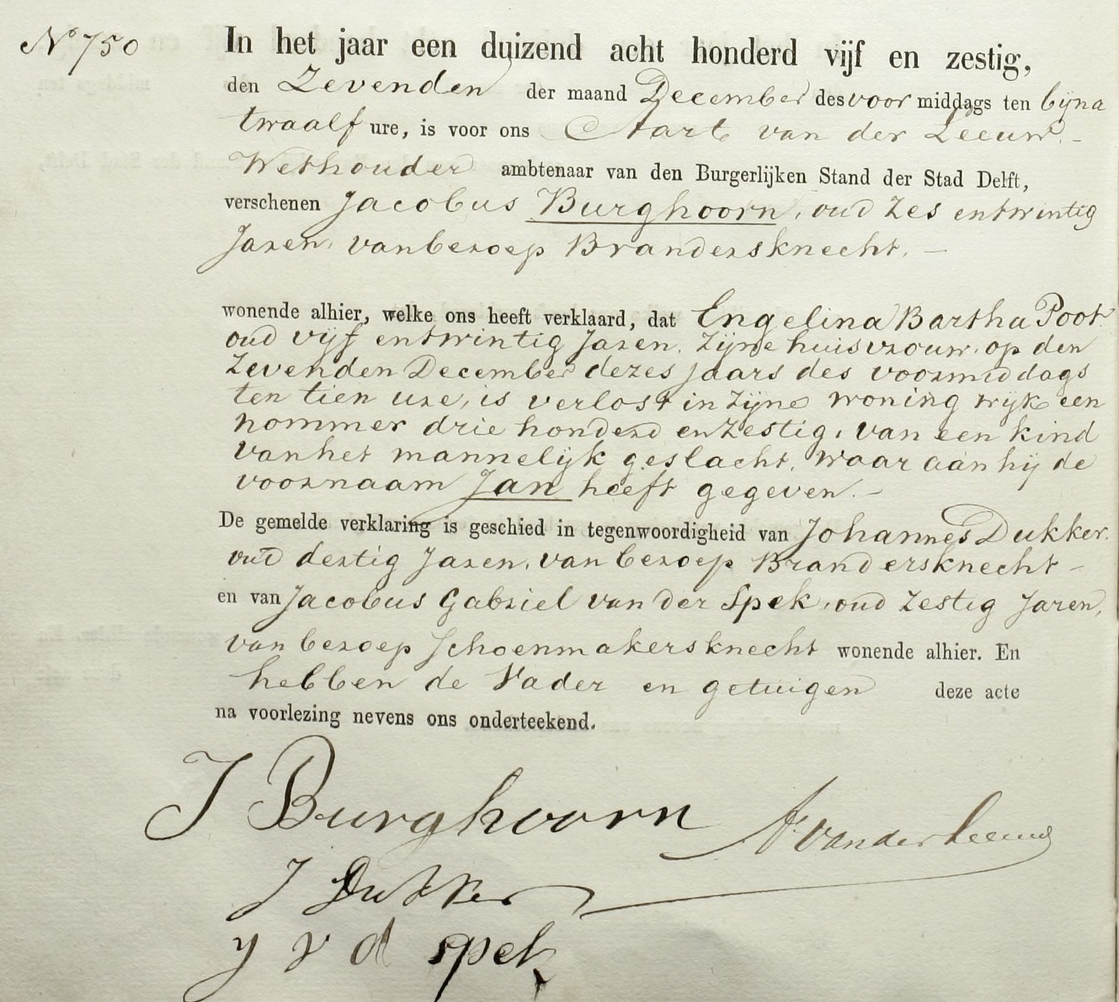 N° 750
In het jaar een duizend acht honderd vijf en zestig,
den Zevenden der maand December des voor middags ten bijna
twaalf ure, is voor ons Aart van der Leeuw.-
Wethouder ambtenaar van den Burgerlijken Stand der Stad Delft,
verschenen Jacobus Burghoorn, oud zes entwintig
Jaren, van beroep Brandersknecht. –
wonende alhier, welke ons heeft verklaard, dat Engelina Bartha Poot
oud vijf entwintig Jaren. Zijne huisvrouw, op den
Zevenden December dezes jaars des voormiddags
ten tien ure, is verlost in Zijne woning wijk een
nommer drie honderd en Zestig, van een kind
van het mannelijk geslacht, waar aan hij de
voornaam Jan heeft gegeven. –
De gemelde verklaring is geschied in tegenwoordigheid van Johannes Dukker.
oud dertig Jaren, van beroep Brandersknecht –
en van Jacobus Gabriel van der Spek, oud Zestig Jaren,
van beroep Schoenmakersknecht wonende alhier. En
hebben de Vader en getuigen deze acte
na voorlezing nevens ons onderteekend.
J Burghoorn A. van der Leeuw
J Dukker
J v d spek